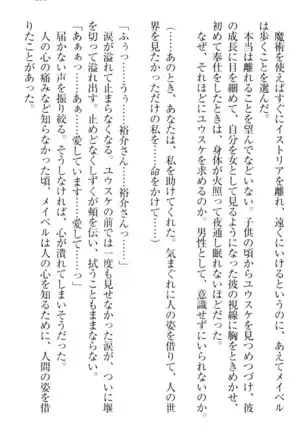 魔術を使えばすぐにイストリアを離れ、遠くにいけるというのに、あえてメイベル
は歩くことを選んだ。
本当は離れることを望んでなどいない。子供の頃からユウスケを見つめつづけ、彼
の成長に目を細めて、自分を女として見るようになった彼の視線に胸をときめかせ、
初めて奉仕をしたときは、身体が火照って夜通し眠れないほどだった。
なぜ、それほどにユウスケのことが好きなのか。男性として、意識せずにいられないのか。
(……あのとき、あなたは、私を助けてくれた。気まぐれに人の姿を借りて、人の世
界を見たかっただけの私を……命をかけて……)
「ふぅっ……うぅ……裕介さん……裕介さん……っ」
涙が溢れて止まらなくなる。ユウスケの前では一度も見せなかった涙が、ついに堰
を切って溢れ出す。止めどなくしずくが頬を伝い、拭うこともままならない。
「あぁっ……あぁ……愛しています……愛して……っ」
届かない声を振り絞る。そうしなければ、心が潰れてしまいそうだった。
人の心の痛みなど知らなかった頃、メイベルは人の心を知るために、人間の姿を借
りたことがあった。